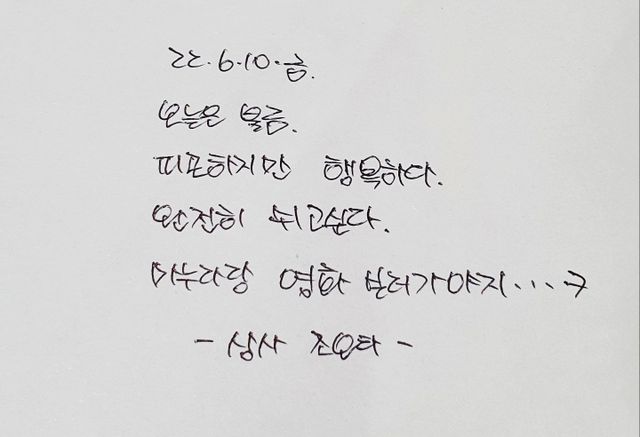 22.6.10.금.
오늘은 불금.
피곤하지만 행복하다.
완전히 쉬고싶다.
마누라랑 영화 보러가야지...ㅋ
- 상사 조요타 -